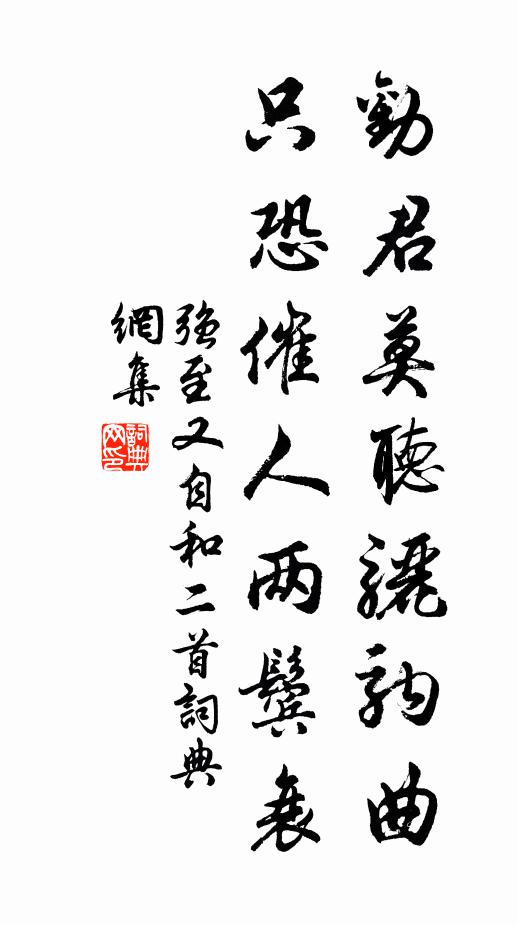 勸君莫聽驪駒曲
只恐催人两鬢衰
強至又自和二首詞典
網集
詞典網印